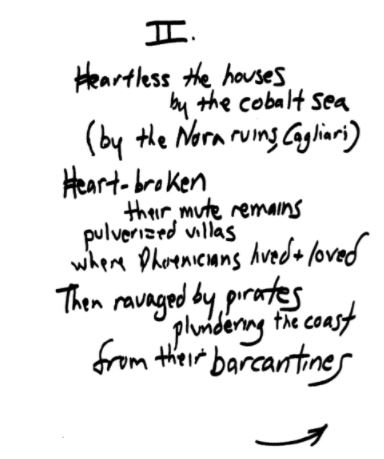 II.
Heartless the houses
by the cobalt sea
(by the Nora ruins, Cagliari)
Heart-broken
their mute remains
pulverized villas
where Phoenicians lived + loved
Then ravaged by pirates
plundering the coast
from their barcantines